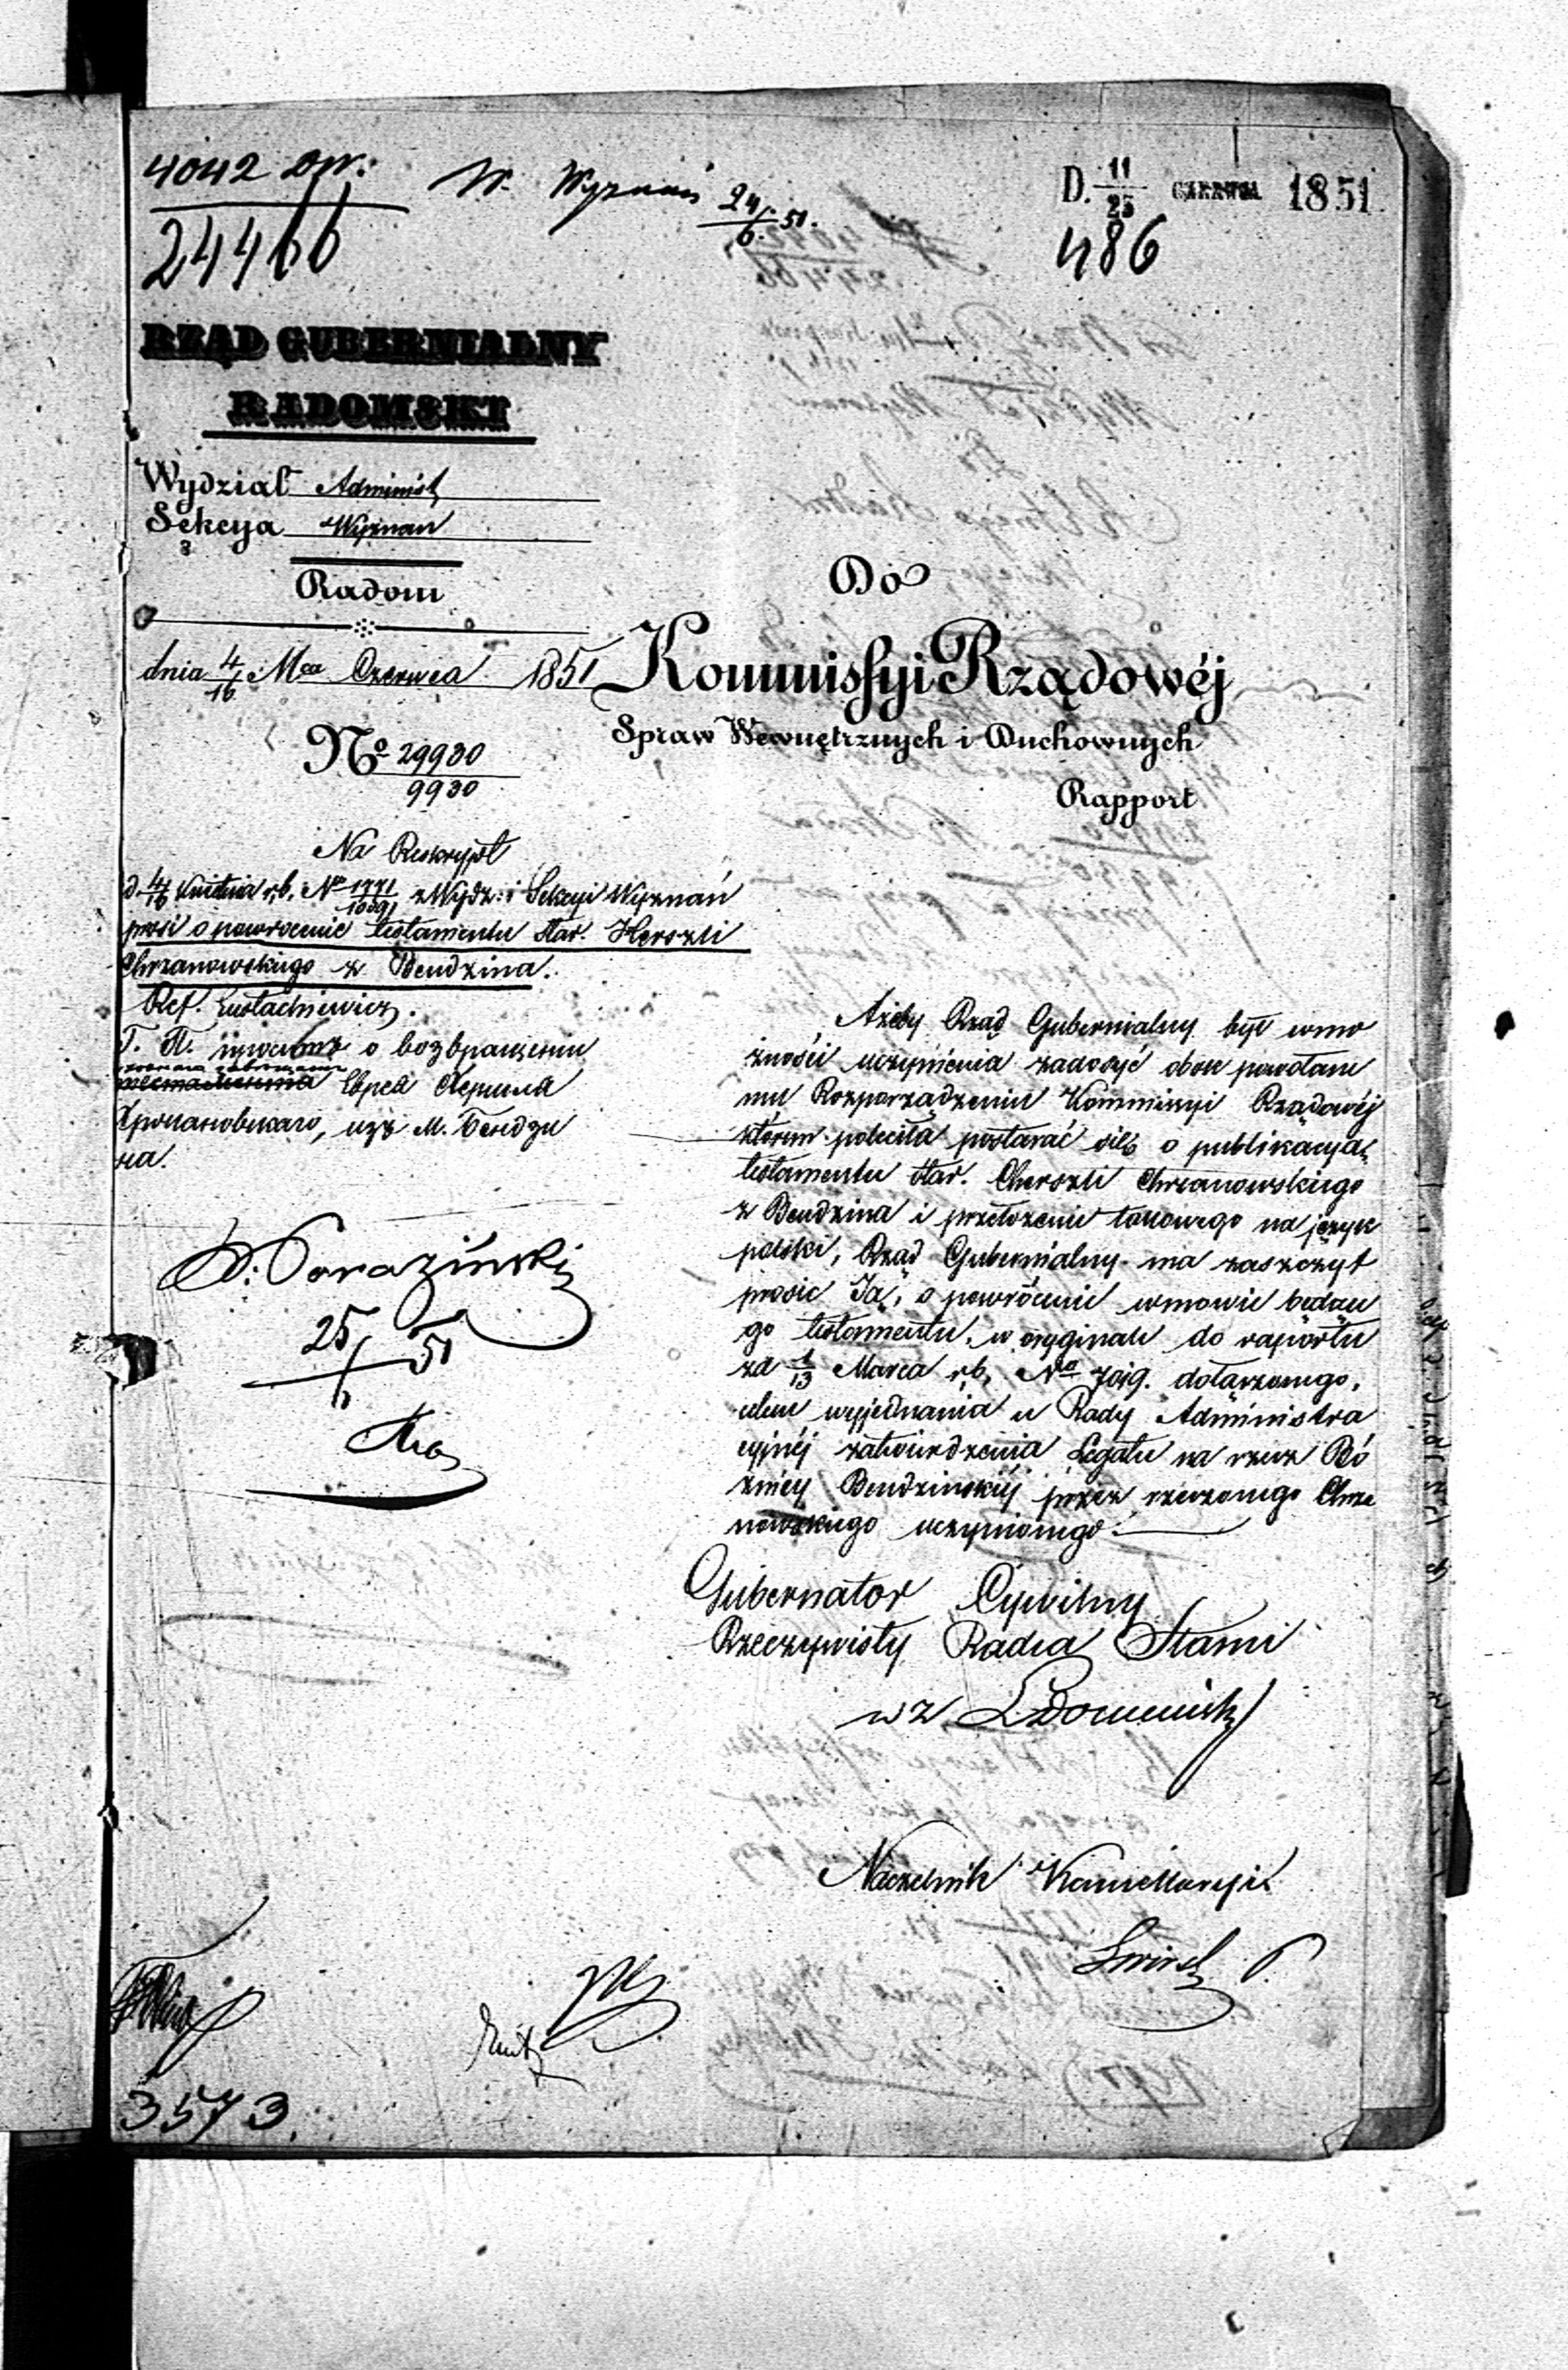 4042
24466
W. Wyznań 24/6. 51.
D. 11/23 CZERWCA 1851
486
RZĄD GUBERNIALNY
RADOMSKI
Wydział Administ
Sekcya Wyznań
Radom
dnia 4/16 Mca Czerwca 1851
No 29930
9930
Do
Kommissyi Rządowéj
Spraw Wewnętrznych i Duchownych
Rapport
Na Reskrypt
d. 4/16 Kwietnia r.b. No 1771 z Wydz: i Sekcyi Wyznań
prosi o powrócenie testamentu star. Herszli
Chrzanowskiego z Bendzina.
Ref. Eustachiewicz.
Г. П. о возвращении
Еврея Хершля
Хржановскаго, изъ м. Бендзи
на.
25 51
Ażeby Rząd Gubernialny był wmo
żności uczynienia zadosyć obok powołane
mu Rozporządzeniu Kommissyi Rządowéj
którem poleciła postarać się o publikacyą
testamentu star. Cherszli Chrzanowskiego
z Bendzina i przełożenie takowego na język
polski, Rząd Gubernialny ma zaszczyt
prosić Ją, o powrócenie wmowie będące
go testamentu, w oryginale do raportu
zd 1/13 Marca r.b. No 7019. dołączonego,
celem wyjednania u Rady Administra
cyjnéj zatwierdzenia Legatu na rzecz Bó
żnicy Bendzinskiéj przez rzeczonego Chrza
nowskiego uczynionego.
Gubernator Cywilny
Rzeczywisty Radca Stanu
wz
Naczelnik Kancellaryi
3573.